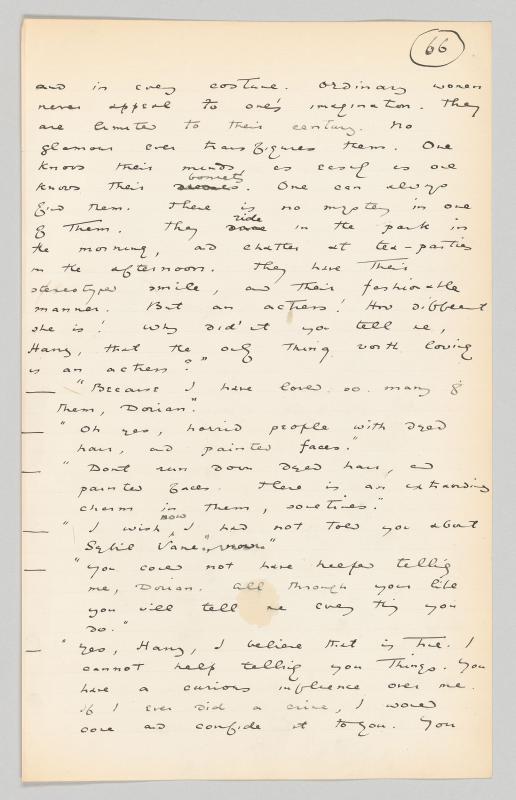 66
and in every costume. Ordinary women
never appeal to one's imagination. They
are limited to their century. No
glamour ever transfigures them. One
knows their minds as easily as one
bonnets
knows their. One can always
find them. There is no mystery in one
ride
of them. They drive in the park in
the morning, and chatter at tea-parties
in the afternoon. They have their
stereotyped smile, and their fashionable
manner. But an actress! How different
she is! Why didn't you tell me,
Harry, that the only thing worth loving
is an actress?"
"Because I have loved so many of
them, Dorian."
"Oh yes, horrid people with dyed
hair, and painted faces."
"Dont run down dyed hair, and
painted faces. There is an extraordinary
charm in them, sometimes."
now
"I wish I had not told you about
Sybil Vane."
"You could not have helped telling
me, Dorian. All through your life
you will tell me every thing you
do."
"Yes, Harry, I believe that is true. I
cannot help telling you things. You
have a curious influence over me.
If I ever did a crime, I would
come and confide it to you. You